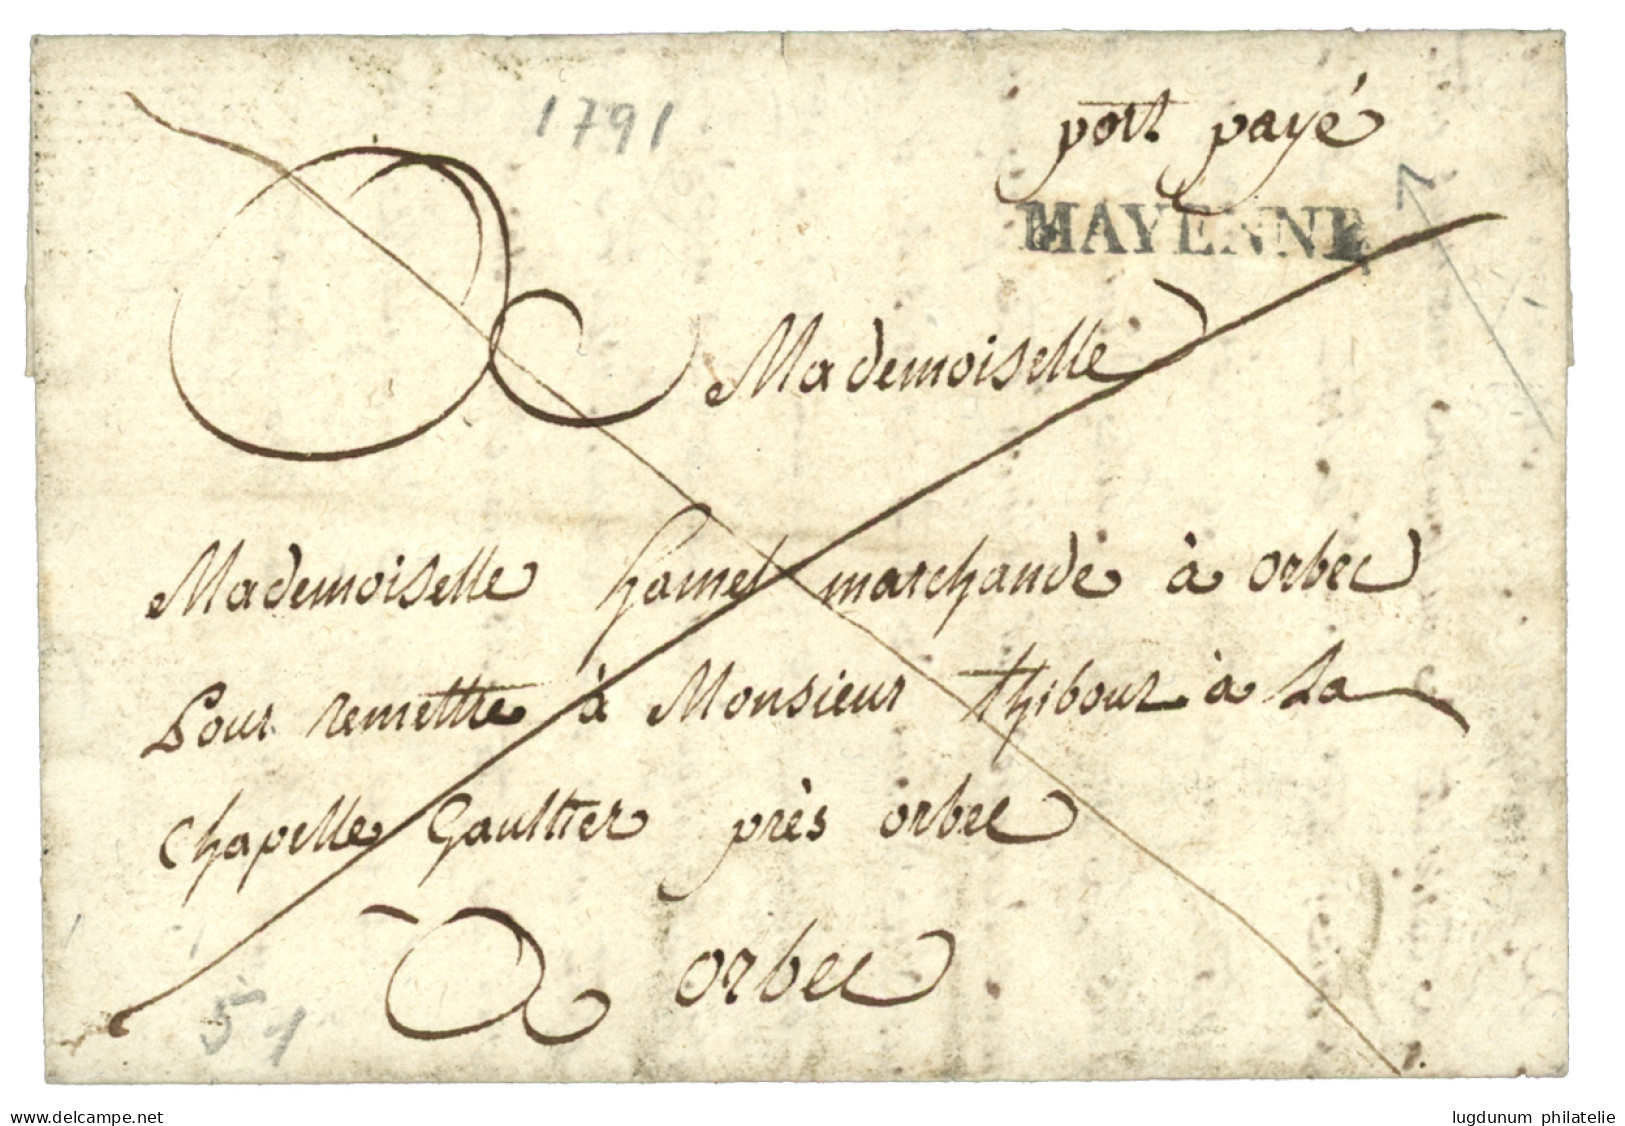 1791
port payé
MAYENNE
Mademoiselle
Mademoiselle hamel marchande à orbec
Pour remettre à Monsieur thibout à La
Chapelle Gaultier près orbec
orbec
51
www.delcampe.net
lugdunum philatelie